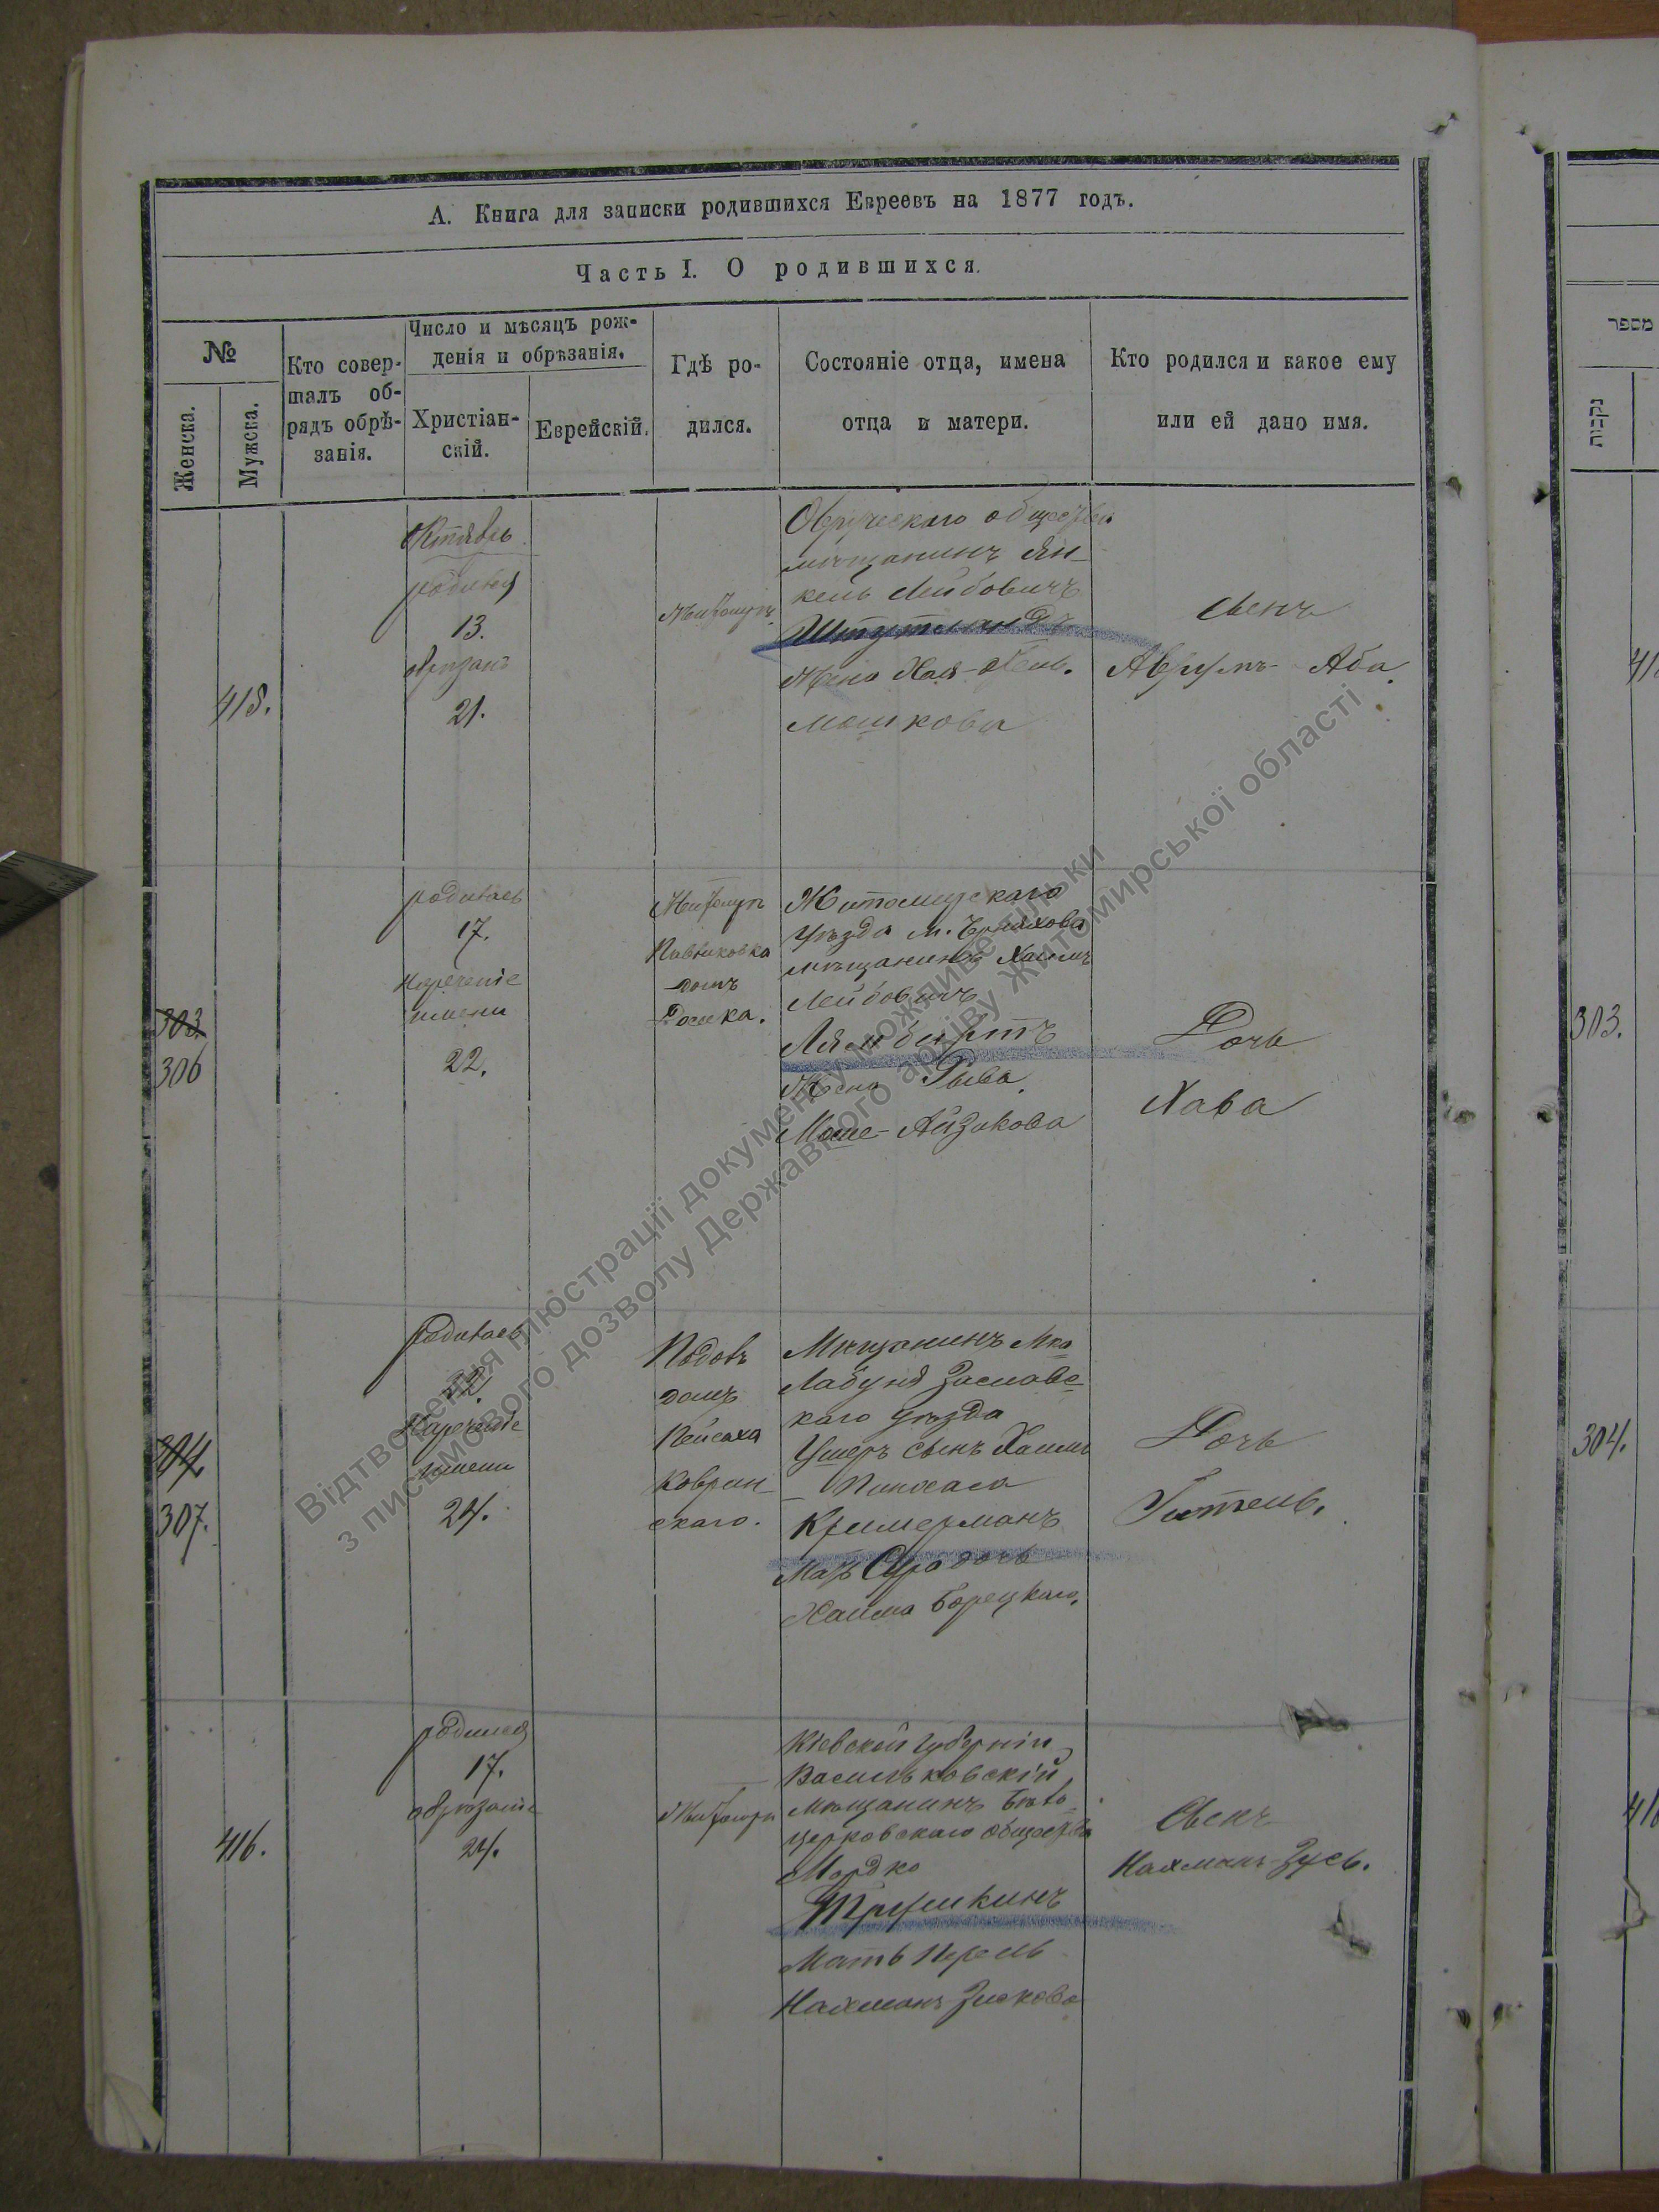 А. Книга для записки родившихся Евреевъ на 1877 годъ.
Часть I. О родившихся.
№
Женска.
Мужска.
Кто совер-
шалъ об-
рядъ обрѣ-
занія.
Число и мѣсяцъ рож-
денія и обрѣзанія.
Христіан-
скій.
Еврейскій.
Гдѣ ро-
дился.
Состояніе отца, имена
отца и матери.
Кто родился и какое ему
или ей дано имя.
מספר
נקבות
415.
Октябрь
родился
13.
обрѣзанъ
21.
Житомиръ
Овручскаго общества
мѣщанинъ Ян-
кель Лейбовичъ
Штутландъ
Жена Хая-
Мошкова
Сынъ
Аврумъ Аба.
303
306
родилась
17.
Нареченіе
имени
22.
Житомир
Павликовка
домъ
Житомирскаго
Уѣзда м. Черняхова
мѣщанинъ Хаимъ
Лейбовичъ
Лямбертъ
Жена Рыва
Моше-Айзикова
Дочь
Хава
303.
304.
307.
родилась
22.
Нареченіе
имени
24.
Подолъ
домъ
Пейсаха
Ковран-
скаго.
Мѣщанинъ Мка
Лабуня Заславс-
каго уѣзда
Ушеръ сынъ Хаима
-Пинхаса
Кримерманъ
Мать Сура дочь
Хаима Борецкаго.
Дочь
Гитель.
304.
416.
родился
17.
обрѣзаніе
24.
Житомиръ
Кіевской губерніи
Васильковскій
Мѣщанинъ Бѣло-
церковскаго общества
Мордко
Трушкинъ
Мать Перель
Нахманъ-Зискова
Сынъ
Нахманъ-Зусь.
Відтворення ілюстрації документу можливе тільки
з письмового дозволу Державного архіву Житомирської області